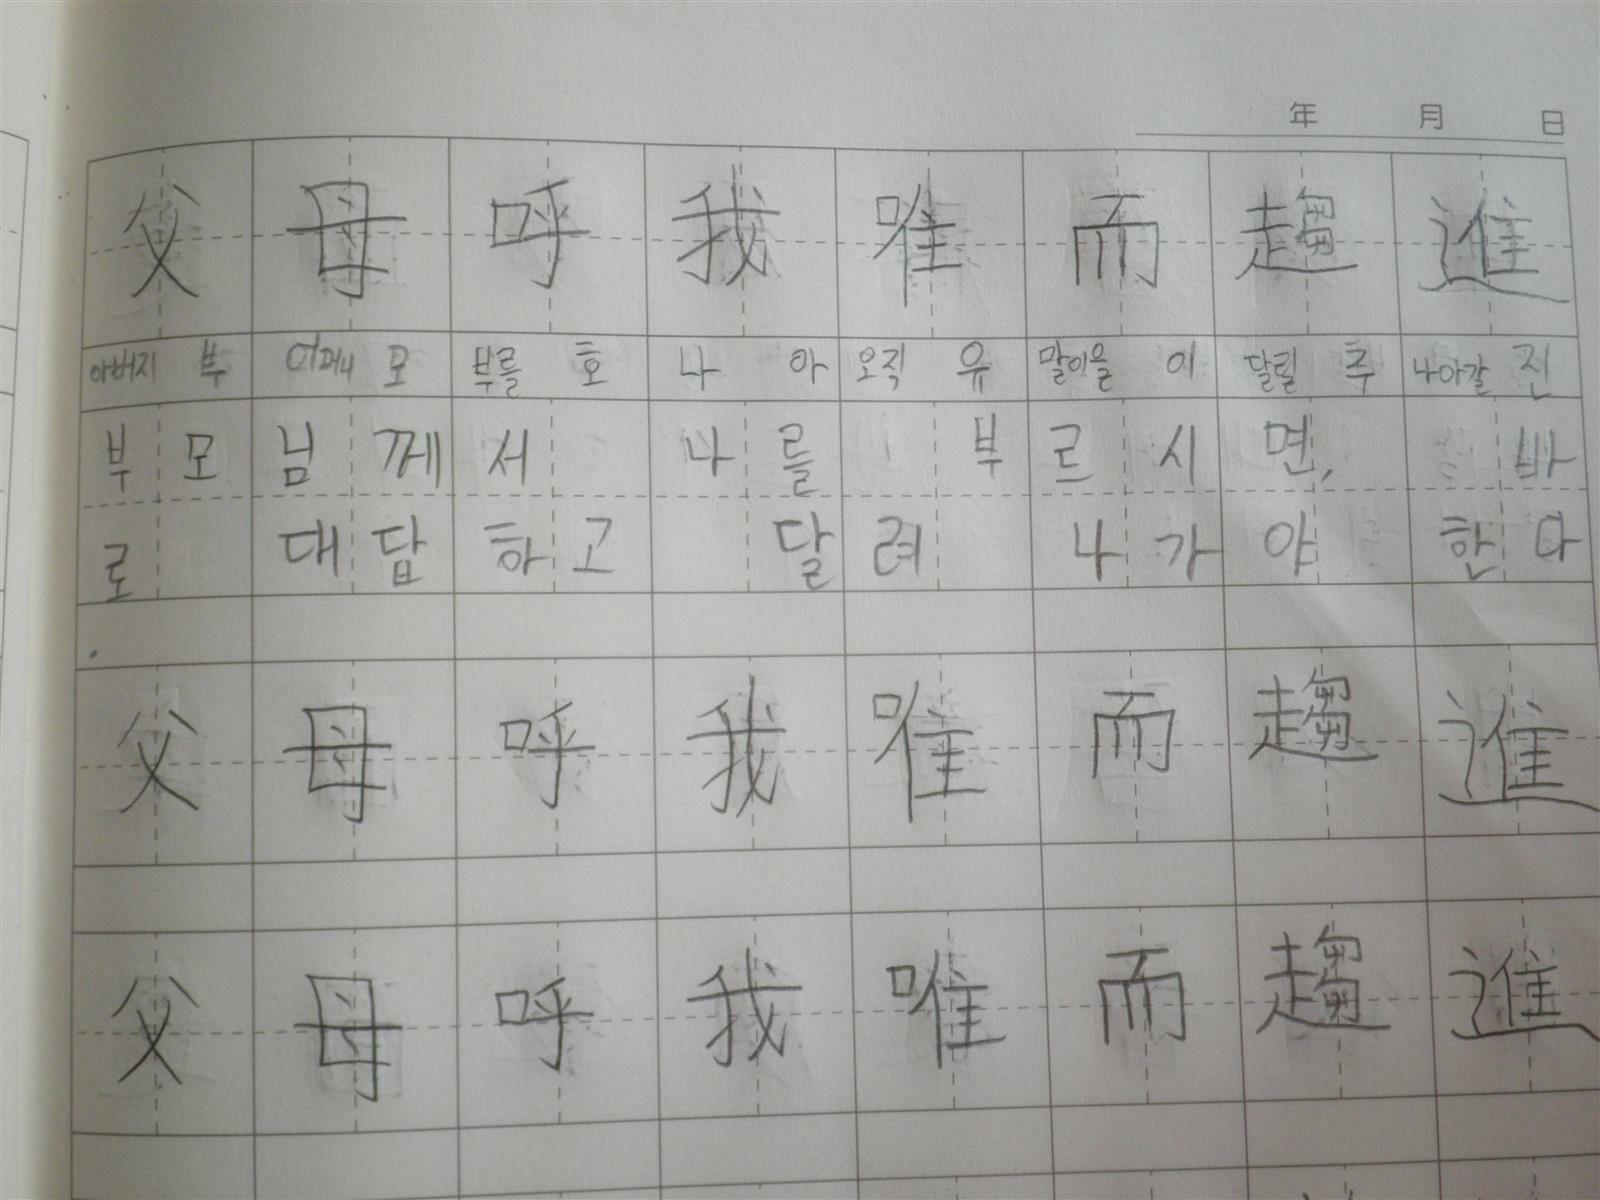 年 月 日
父 母 呼 我 唯 而 趨 進
아버지 부 어머니 모 부를 호 나 아 오직 유 말이을 이 달릴 추 나아갈 진
부모님께서 나를 부르시면, 바
로 대답하고 달려 나가야 한다
.
父 母 呼 我 唯 而 趨 進
父 母 呼 我 唯 而 趨 進